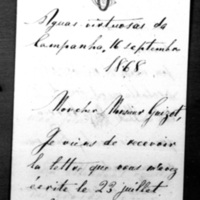 Aguas virtuosas da
Campanha, 16 septembre
1868
Monsieur Guizot,
Je viens de recevoir
la lettre que vous m'avez
écrite le 23 juillet